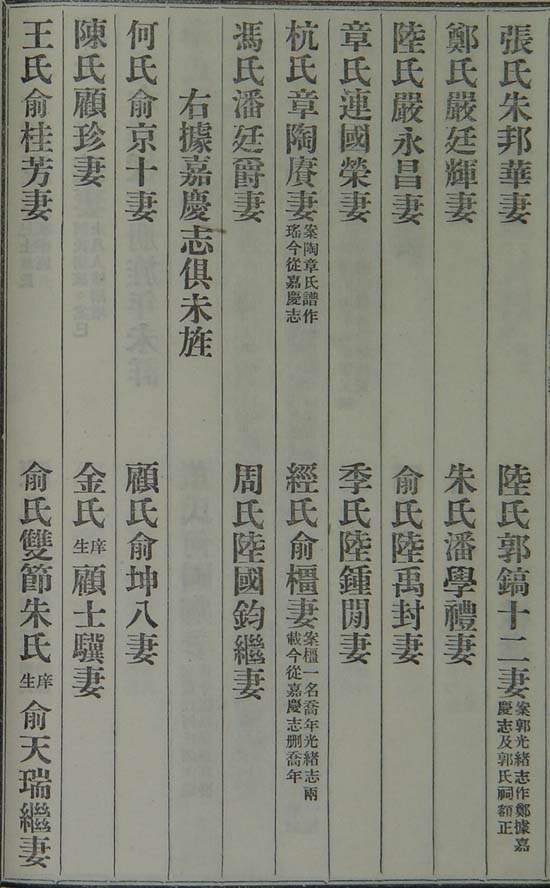 張氏朱邦華妻　陸氏郭鎬十二妻案郭光緒志作鄭據嘉慶志及郭氏祠額正
鄭氏嚴廷輝妻　朱氏潘學禮妻
陸氏嚴永昌妻　俞氏陸禹封妻
章氏連國榮妻　季氏陸鍾閒妻
杭氏章陶賡妻案陶章氏譜作瑤今從嘉慶志　經氏俞橿妻案橿一名喬年光緒志兩載今從嘉慶志刪喬年
馮氏潘廷爵妻　周氏陸國鈞繼妻
右據嘉慶志俱未旌
何氏俞京十妻　顧氏俞坤八妻
陳氏顧珍妻　金氏庠生顧士驥妻
王氏俞桂芳妻　俞氏雙節朱氏庠生俞天瑞繼妻